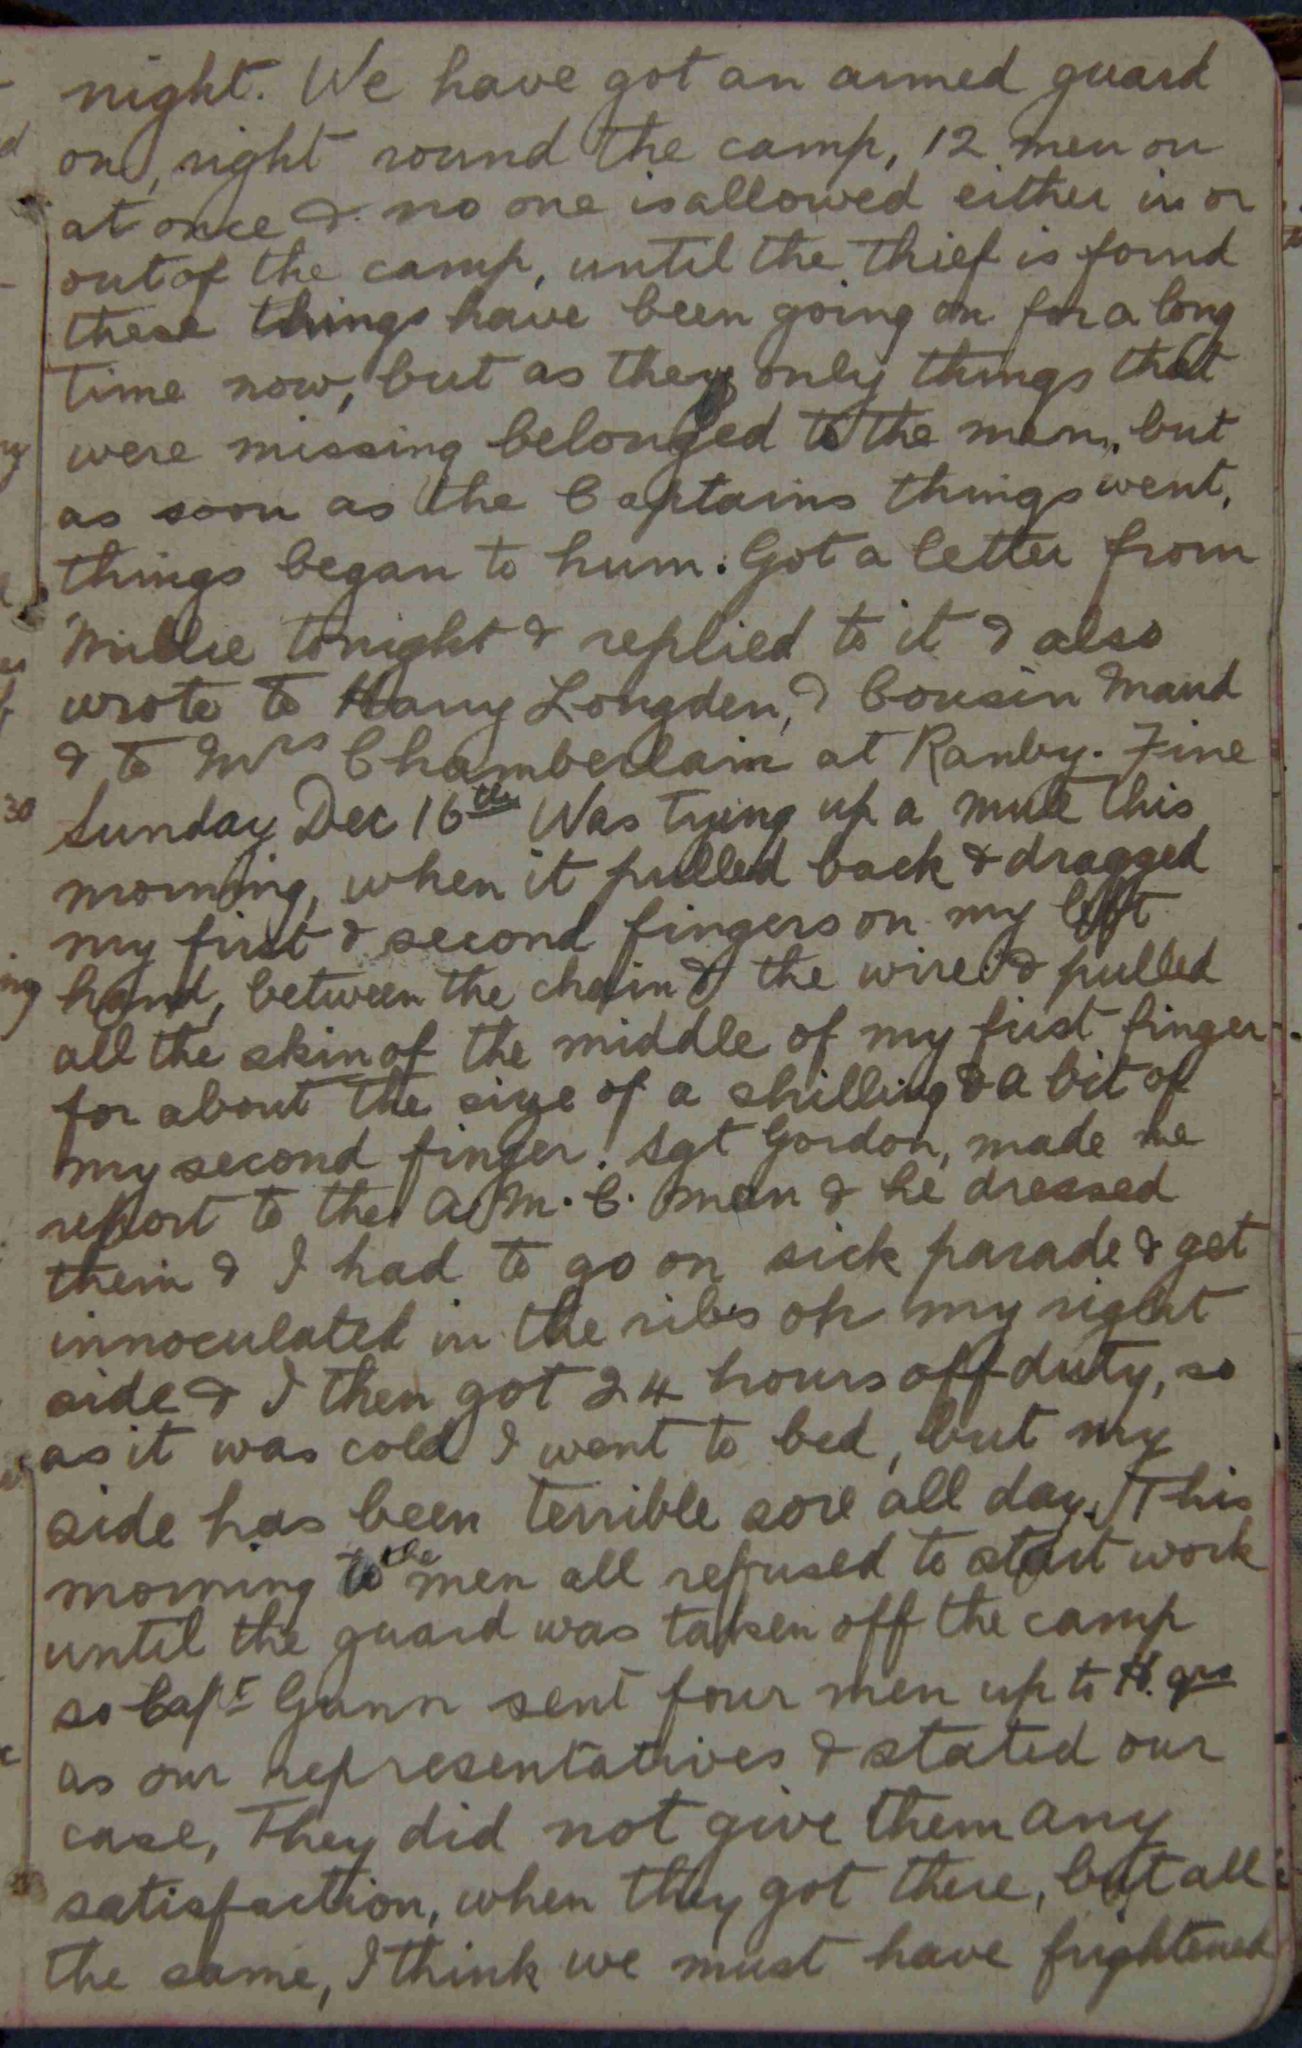 night. We have got an armed guard
on, right round the camp, 12 men on
at once & no one is allowed either in or
out of the camp, until the thief is found
these things have been going on for a long
time now, but as they only things that
were missing belonged to the men, but
as soon as the Captains things went,
things began to hum. Got a letter from
Millie tonight & replied to it & also
wrote to Harry Longden, & Cousin Maud
& to Mrs Chamberlain at Ranby. Fine
Sunday Dec 16th Was tying up a mule this
morning, when it pulled back & dragged
my first & second fingers on my left
hand, between the chain & the wire & pulled
all the skin of the middle of my first finger
for about the size of a shilling & a bit of
my second finger. Sgt Gordon, made me
report to the A.M.C. man & he dressed
them & I had to go on sick parade & get
innoculated in the ribs on my right
side & I then got 24 hours off duty, so
as it was cold I went to bed, but my
side has been terrible sore all day. This
morning the men all refused to start work
until the guard was taken off the camp
so Capt Gunn sent four men up to H. qrs
as our representatives & stated our
case, They did not give them any
satisfaction, when they got there, but all
the same, I think we must have frightened